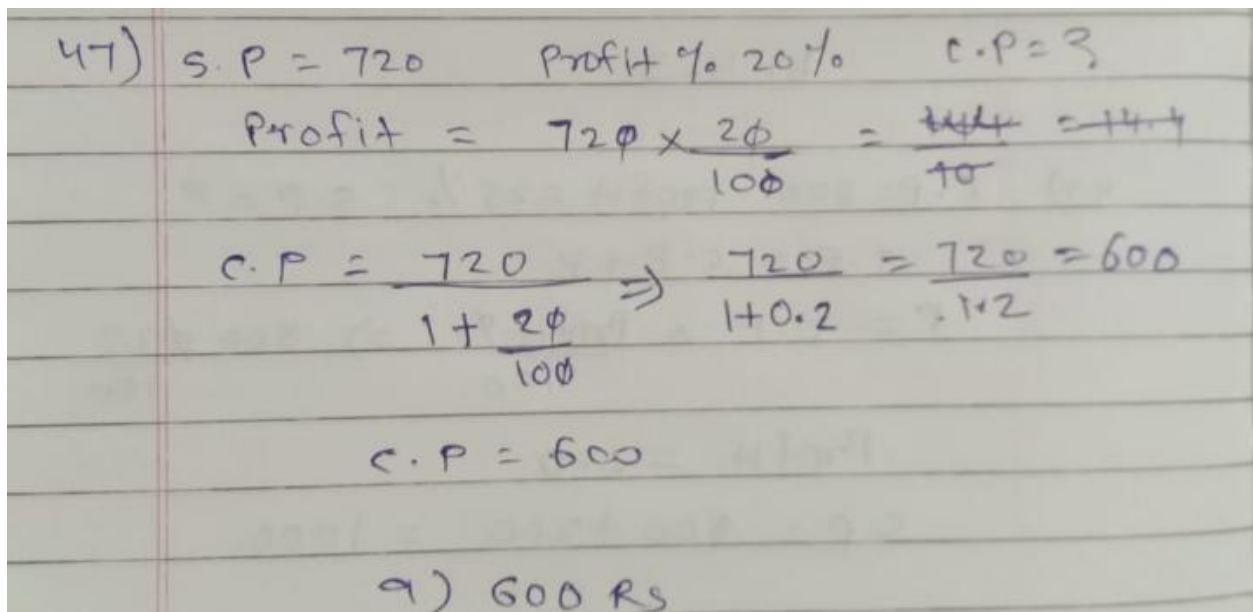 47) S.P = 720 Profit % 20% C.P = ?
Profit = 720 × 20/100 = 144/10 = 14.4
C.P = 720/(1 + 20/100) ⇒ 720/(1+0.2) = 720/1.2 = 600
C.P = 600
a) 600 Rs